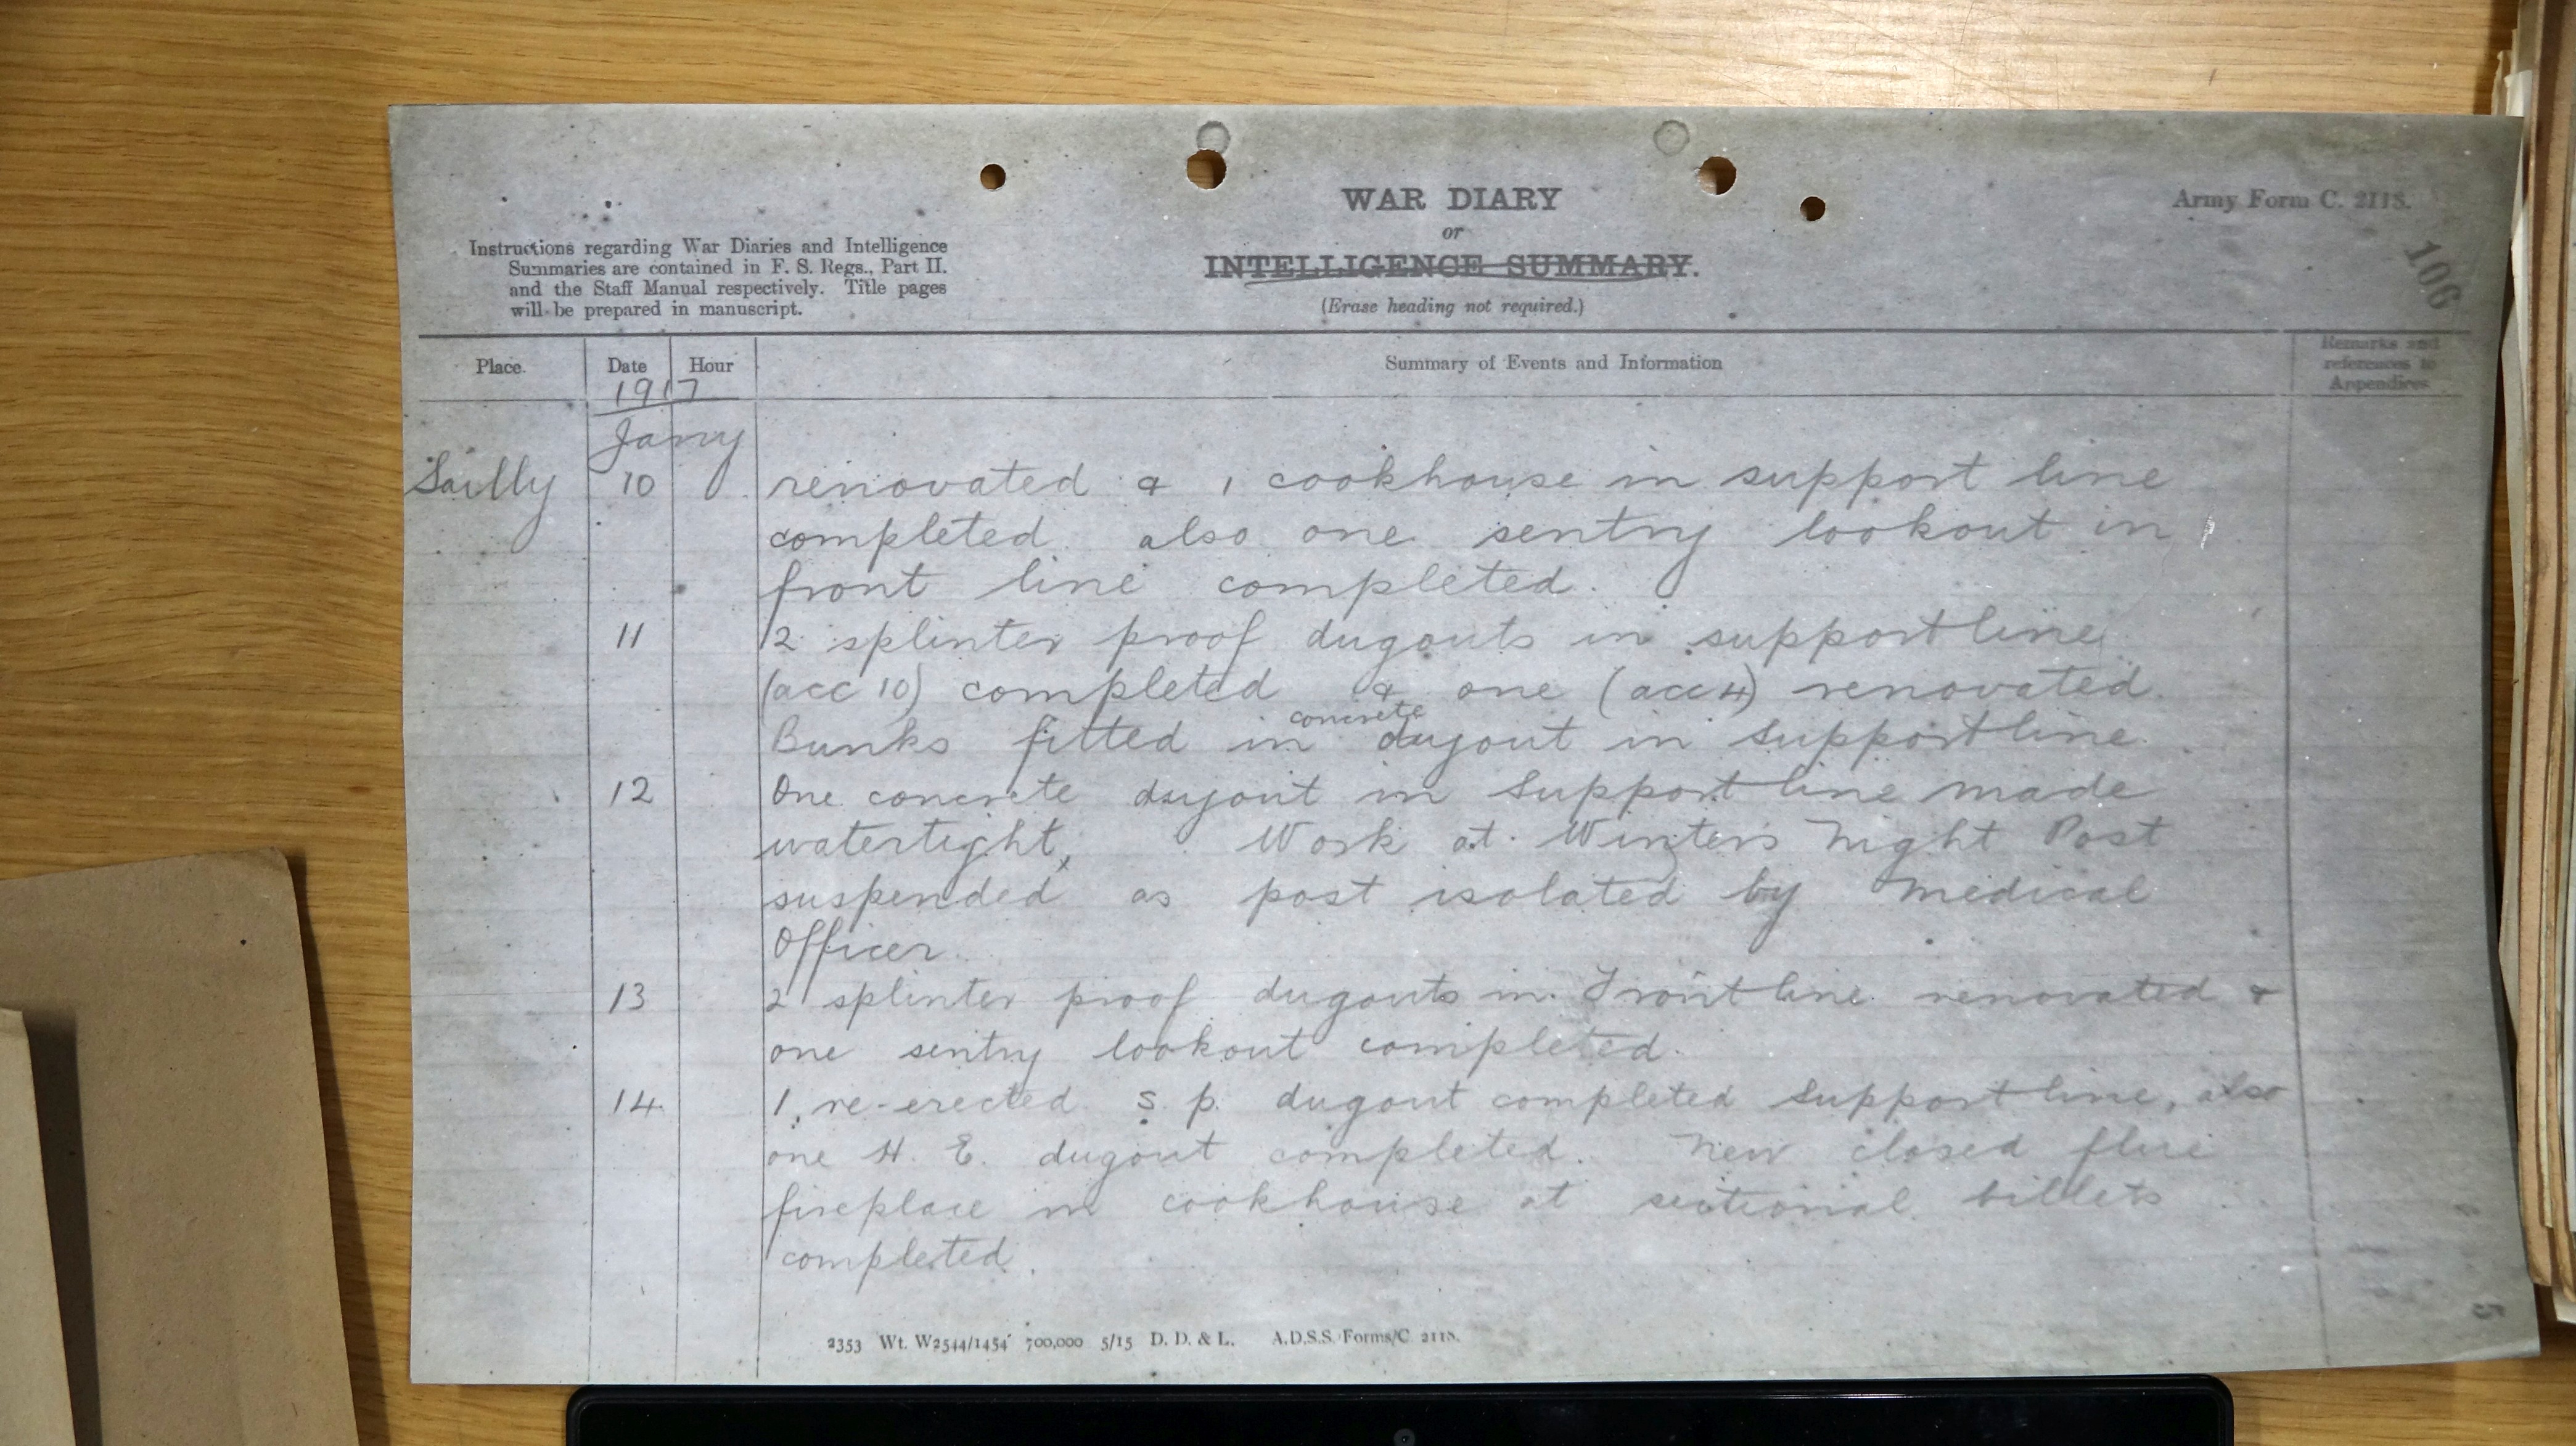 WAR DIARY
or
INTELLIGENCE SUMMARY.
(Erase heading not required.)
Army Form C. 2118.
106
Instructions regarding War Diaries and Intelligence
Summaries are contained in F. S. Regs., Part II.
and the Staff Manual respectively. Title pages
will be prepared in manuscript.
Place. Date Hour Summary of Events and Information Remarks and
references to
Appendices
1917
Jany
Sailly 10 renovated & 1 cookhouse in support line
completed also one sentry lookout in
front line completed.
11 2 splinter proof dugouts in support line
(acc 10) completed & one (acc 4) renovated.
Bunks fitted in concrete dugout in support line.
12 One concrete dugout in support line made
watertight, Work at Winters Night Post
suspended as post isolated by Medical
Officer.
13 2 splinter proof dugouts in Front line renovated &
one sentry lookout completed.
14 1 re-erected s. p. dugout completed support line, also
one H. E. dugout completed. New closed flue
fireplace in cookhouse at sectional billets
completed.
2353 Wt. W2544/1454 700,000 5/15 D. D. & L. A.D.S.S. Forms/C. 2118.